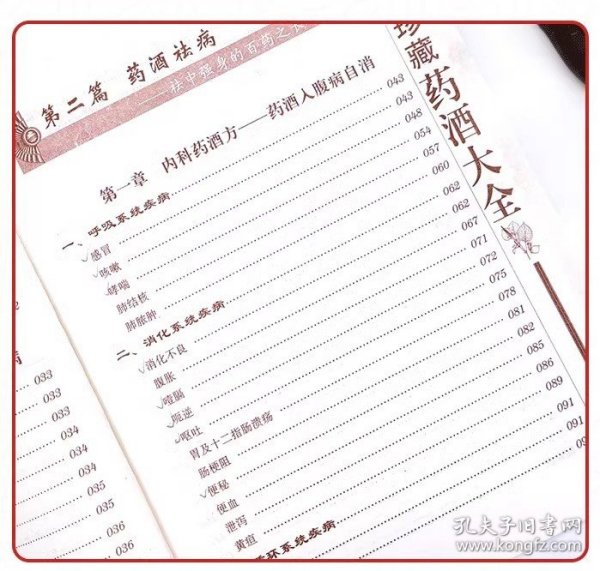 第二篇 药酒祛病
——祛中强身的百药之长
第一章 内科药酒方——药酒入腹病自消
一、呼吸系统疾病 043
感冒 043
咳嗽 048
哮喘 054
肺结核 057
肺脓肿 060
二、消化系统疾病 062
消化不良 062
腹胀 067
噎膈 071
呃逆 072
呕吐 075
胃及十二指肠溃疡 078
肠梗阻 081
便秘 082
便血 085
泄泻 086
黄疸 089
环系统疾病 091
091
珍藏药酒大全
病
033
033
033
034
034
034
035
035
036
036
孔夫子旧书网
www.kongfz.com